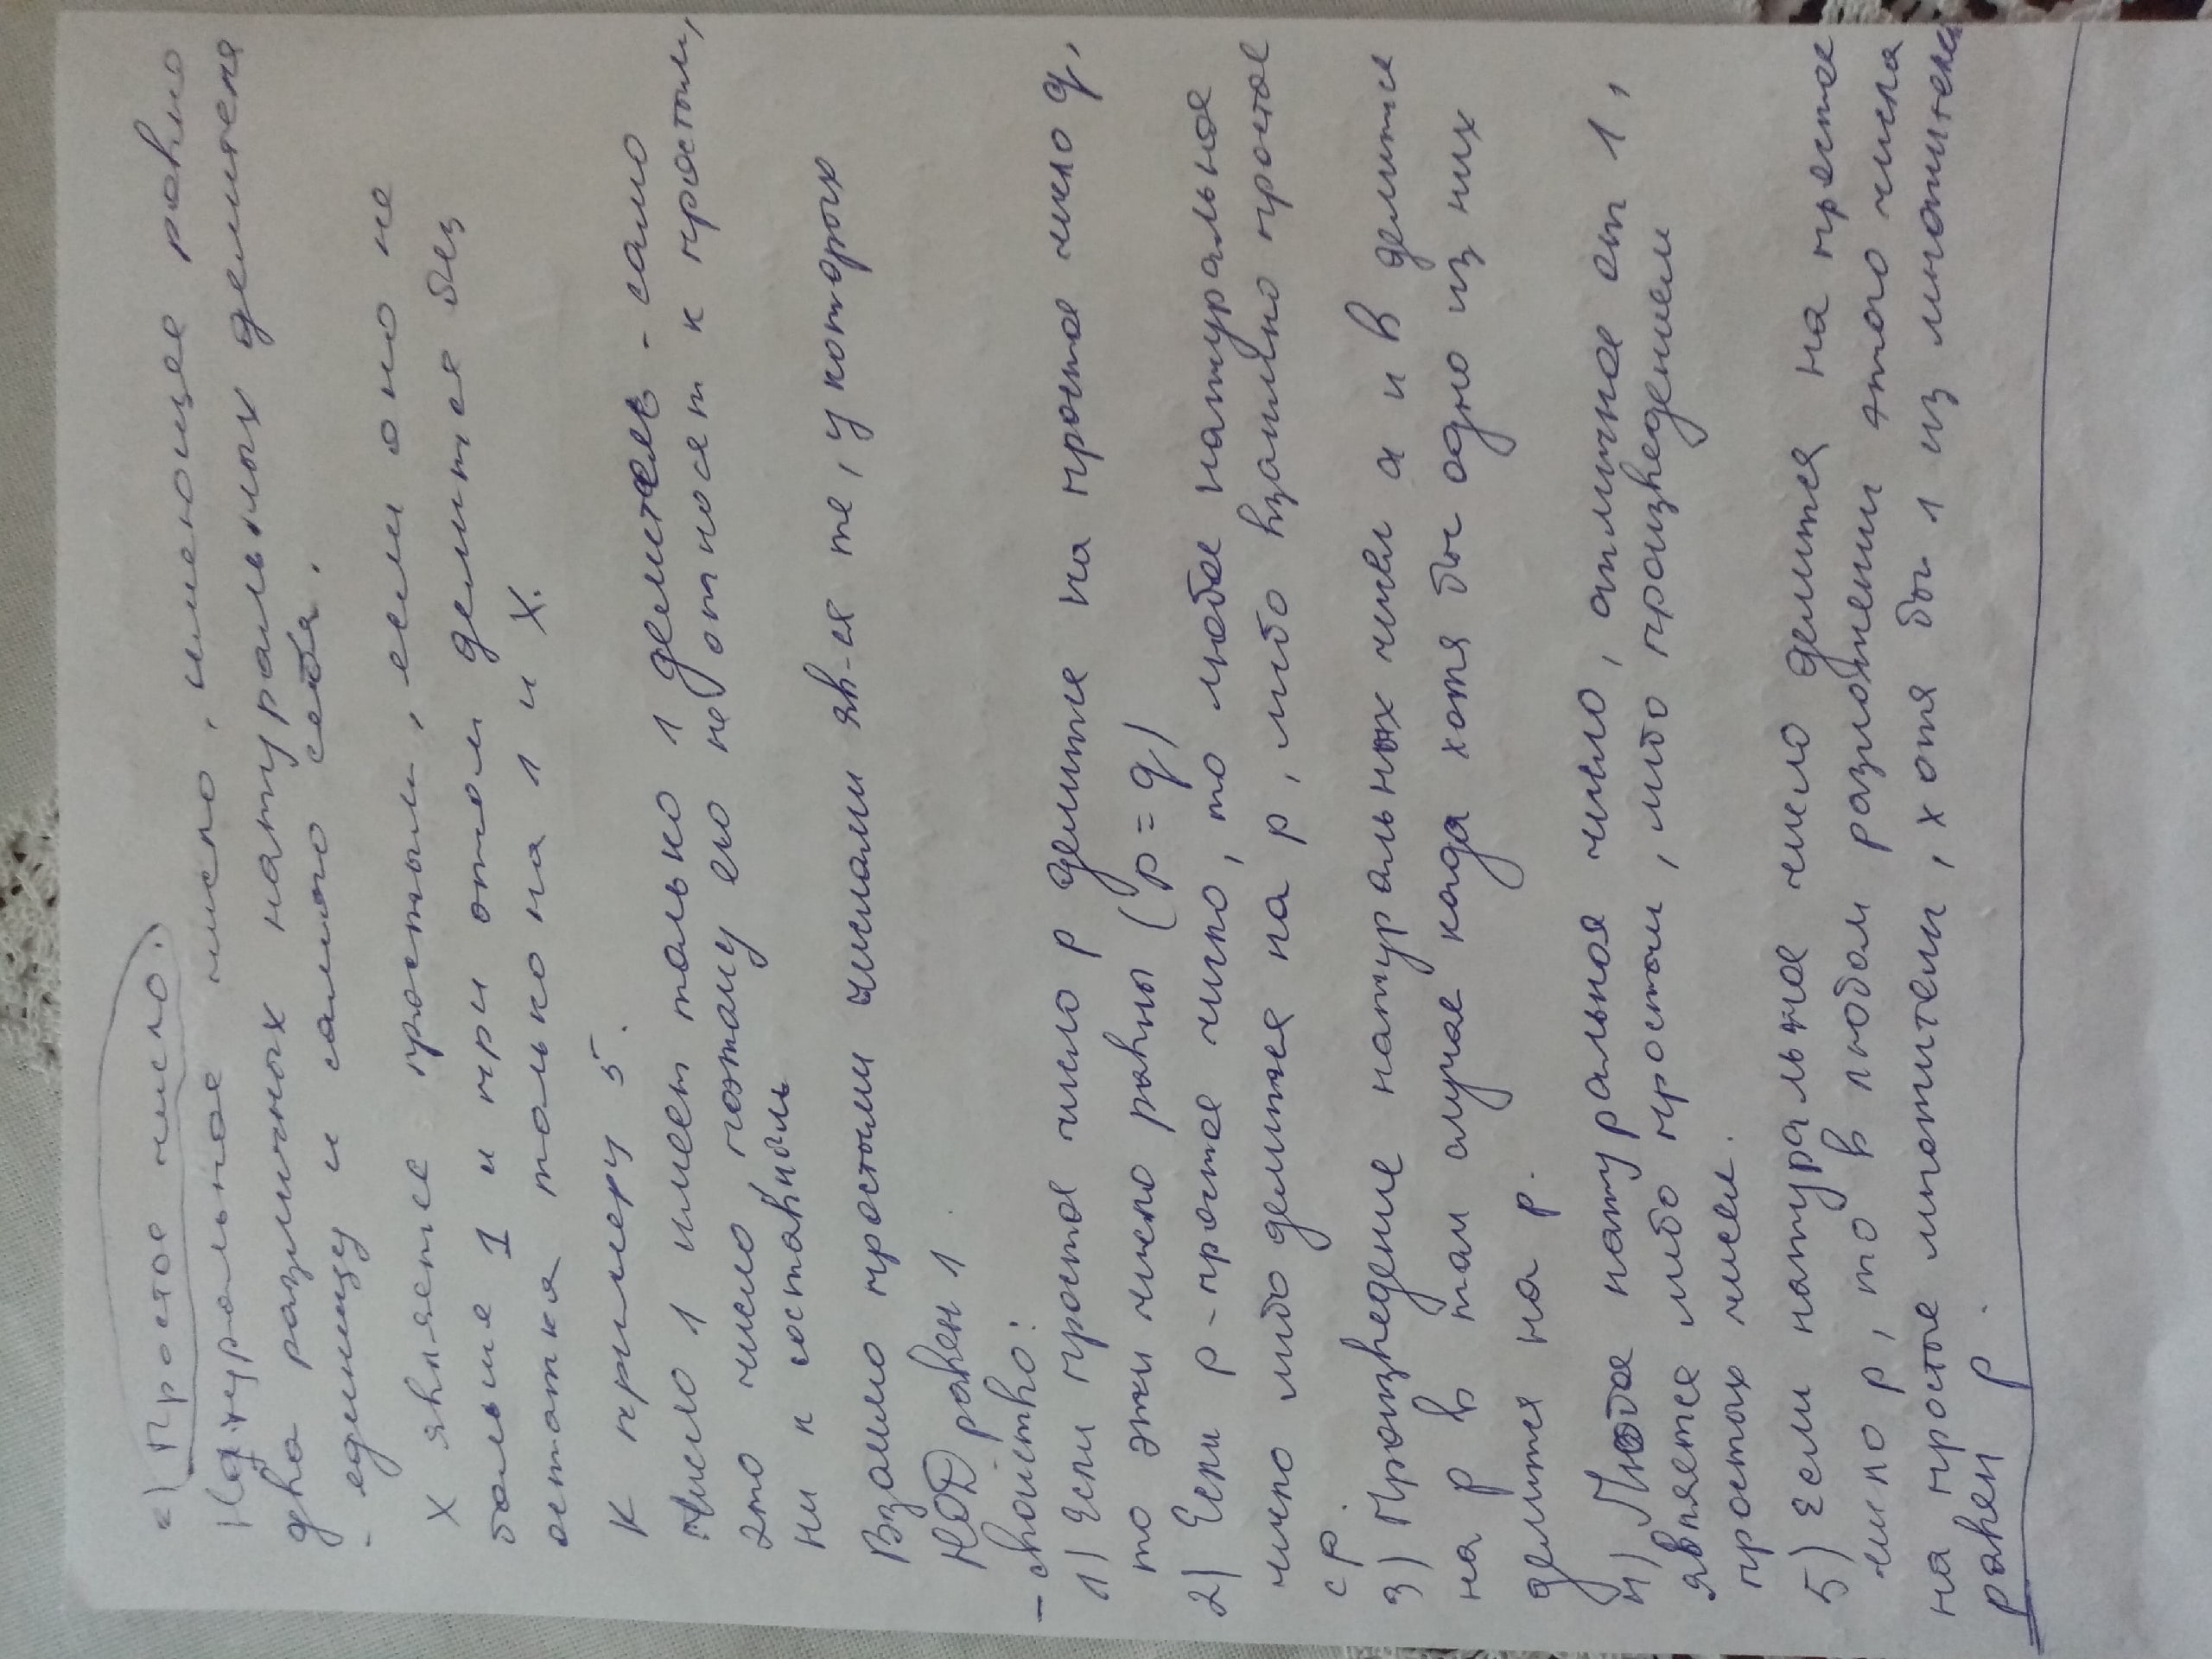 с) Простое число.
Натуральное число, имеющее равно
два различных натуральных делителя
- единицу и самого себя.
X является простым, если оно не
больше 1 и при этом делится без
остатка только на 1 и X.
К примеру 5.
Число 1 имеет только 1 делитель - само
это число поэтому его не относят к простым,
ни к составным
Взаимо простыми числами яв-ся те, у которых
НОД равен 1.
- свойство:
1) Если простое число p делится на простое число q,
то эти число равны (p = q)
2) Если p - простое число, то любое натуральное
число либо делится на p, либо взаимно простое
с p.
3) Произведение натуральных чисел a и b делится
на p в том случае когда хотя бы одно из них
делится на p.
4) Любое натуральное число, отличное от 1,
является либо простым, либо произведением
простых чисел.
5) Если натуральное число делится на простое
число p, то в любом разложении этого числа
на простые множители, хотя бы 1 из множителей
равен p.